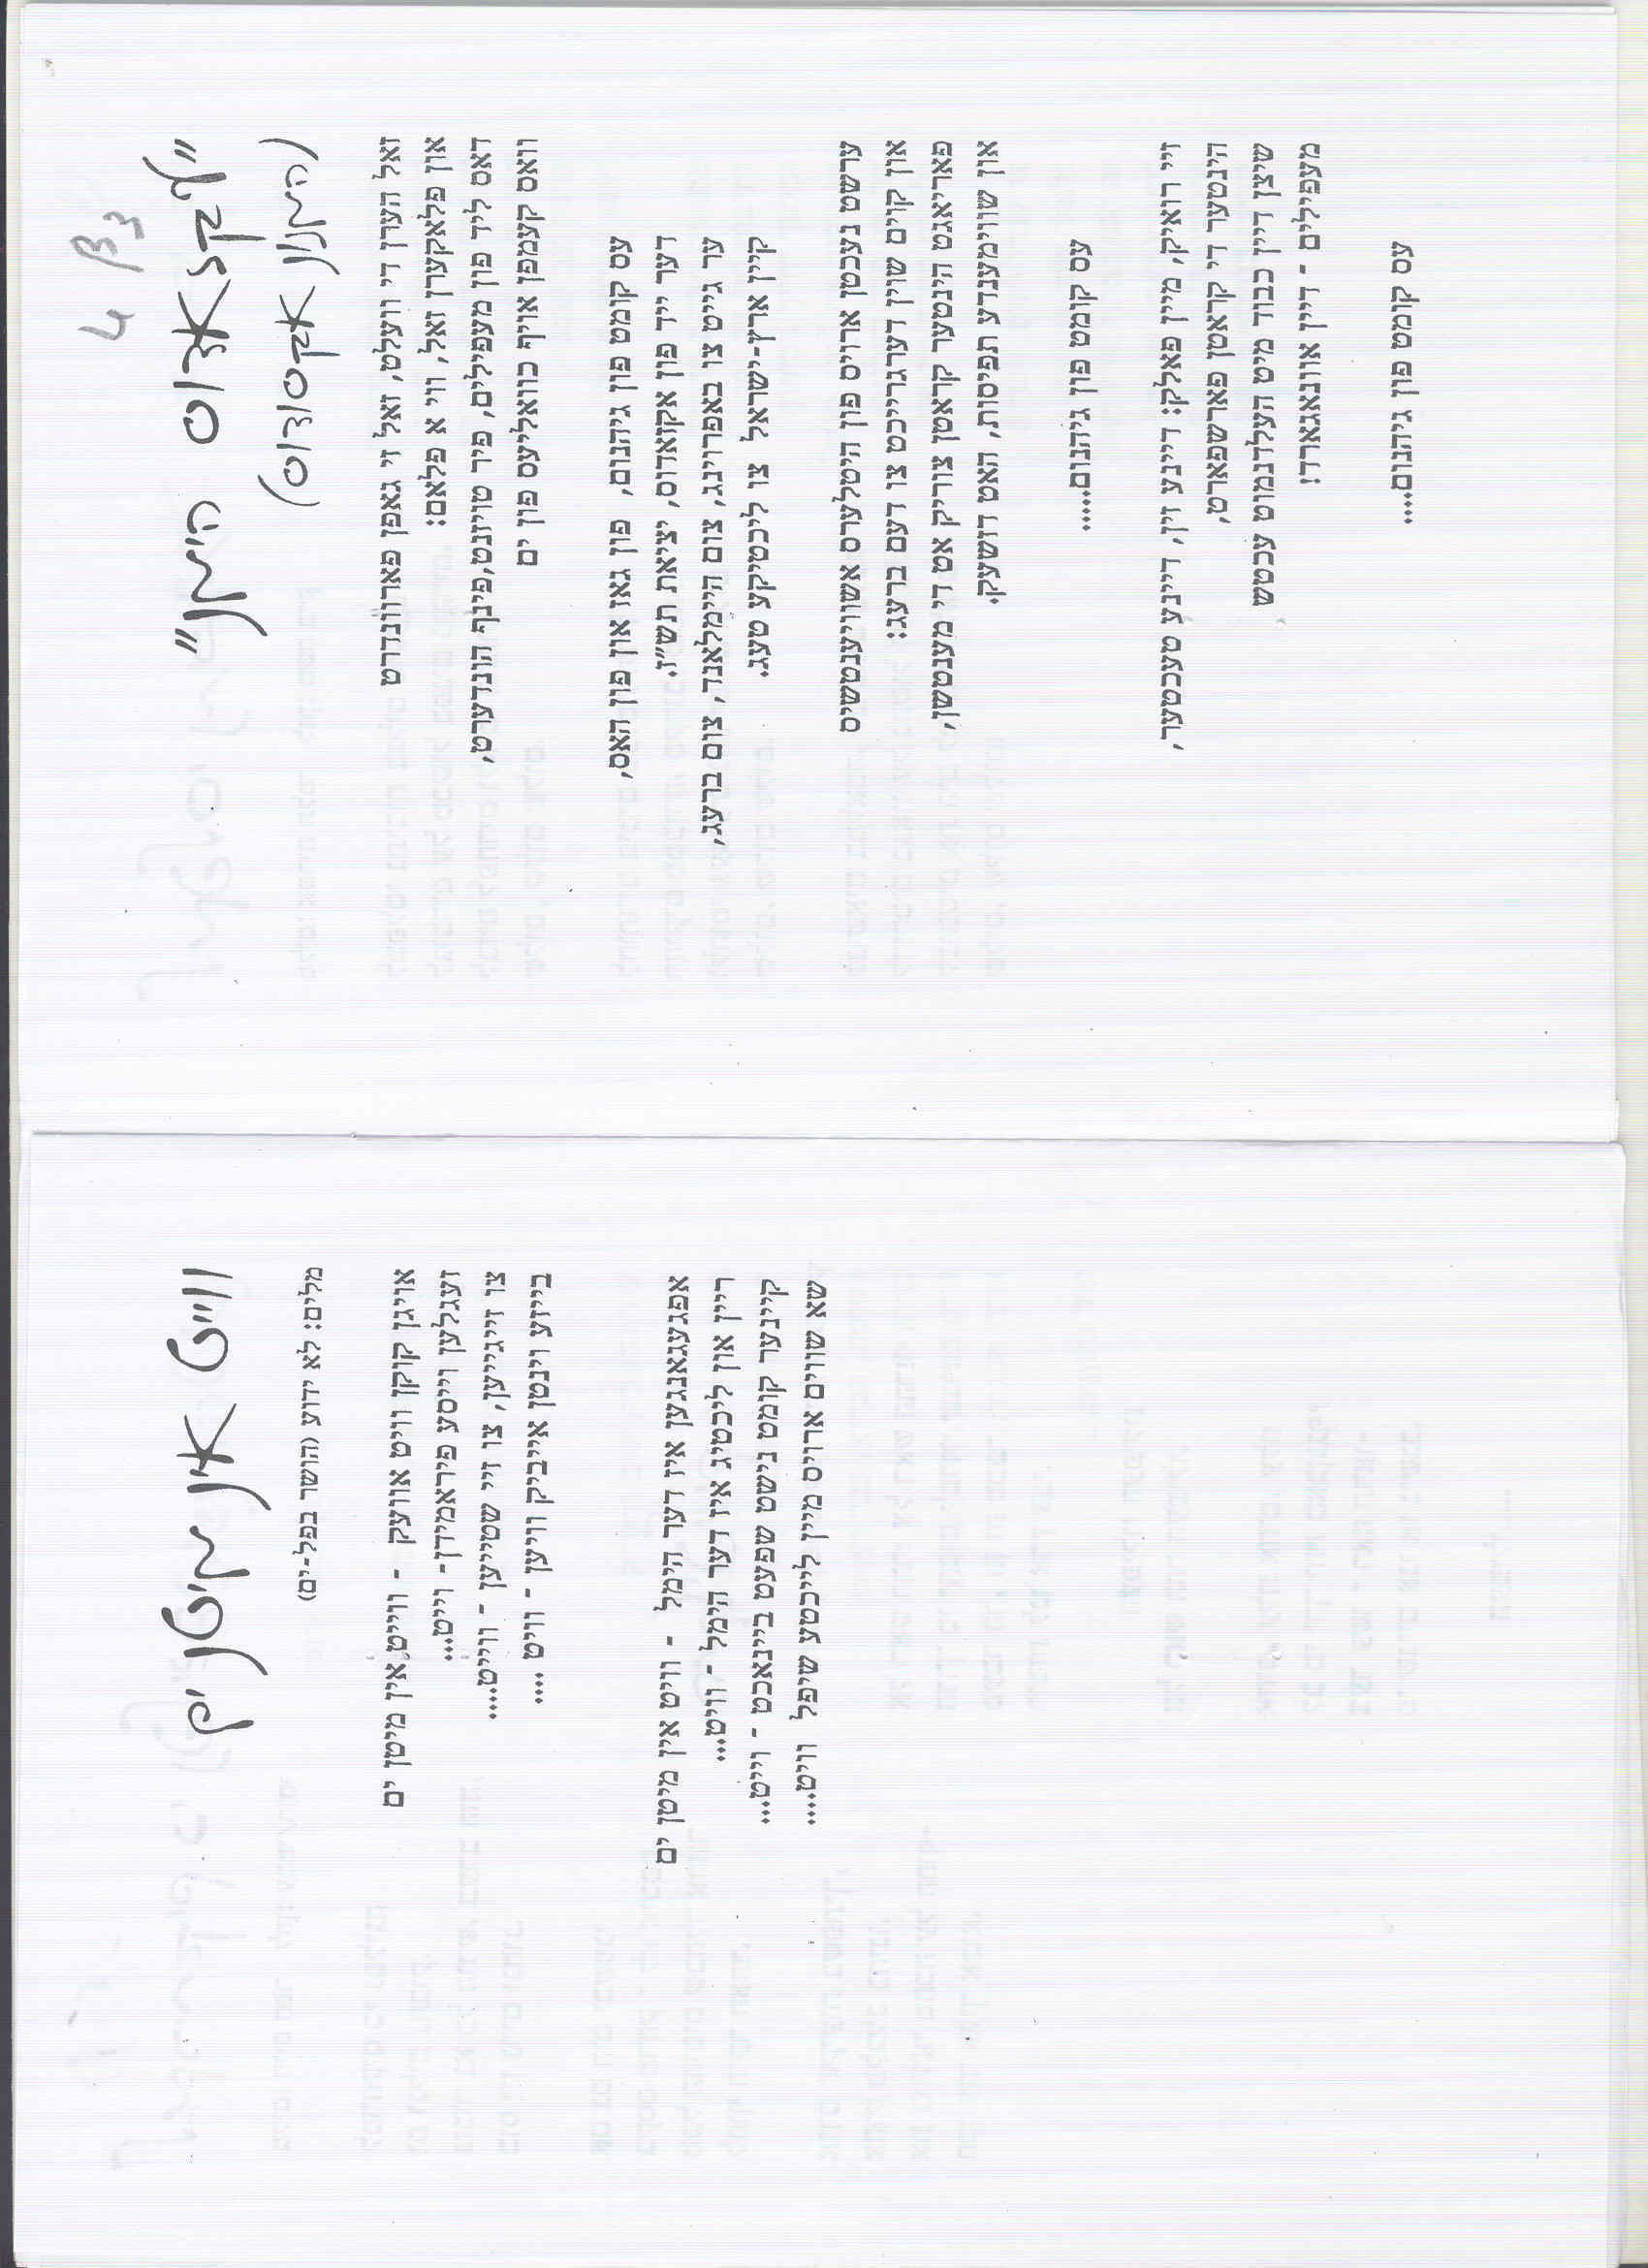 4 β3
"עקזאדוס הימן"
(הימנון אקסודוס)
זאל הערן די וועלט, זאל זי גאפן פארוונדרט
און פלאקערן זאל, ווי א פלאם:
דאס ליד פון מעפילים, פיר טויזנט,פינף הונדערט,
וואס קעמפן אויף כוואליעס פון ים
עס קומט פון גיהנום, פון גאז און פון האס,
דער ייד פון אקזאדוס, יציאת תש"ז.
ער גייט צו באפרוינג, צום היימלאנד, צום ברעג,
קיין ארץ-ישראל צו ליכטיקע טעג.
ערשט נעכטן ארויס פון היטלערס אשוויענטשים
און קוים שוין דערגרייכט צו דעם ברעג:
פאריאגט הינטער קראטן צוריק אט די מענטשן,
און שווימענדע תפיסות, האט דושעק.
עס קומט פון גיהנום.....
זיי רואיק, מיין פאלק: דיינע זין, דיינע טעכטער,
הינטער די קראטן פארשפארט,
שיצן דיין כבוד מיט העלדנמוט עכטש
מעפילים - דיין אוונאגארד!
עס קומט פון גיהנום....
ווייט אין מיטן ים
מלים: לא ידוע (הושר בפל-ים)
אויגן קוקן וויט אוועק - ווייט,אין מיטן ים
זעגלען וייסע פיראמידן- וייט...
צו זייגייען, צו זיי שטייען - ווייט....
בייזע וינטן אייביק וויען - וויט ....
אפגעגאנגען איז דער הימל - וויט אין מיטן ים
ריין און ליכטיג איז דער הימל - וויט...
קיינער קומט נישט שפעט ביינאכט - וייט...
שא שווים ארויס מיין לייכטע שיפל וויט.....